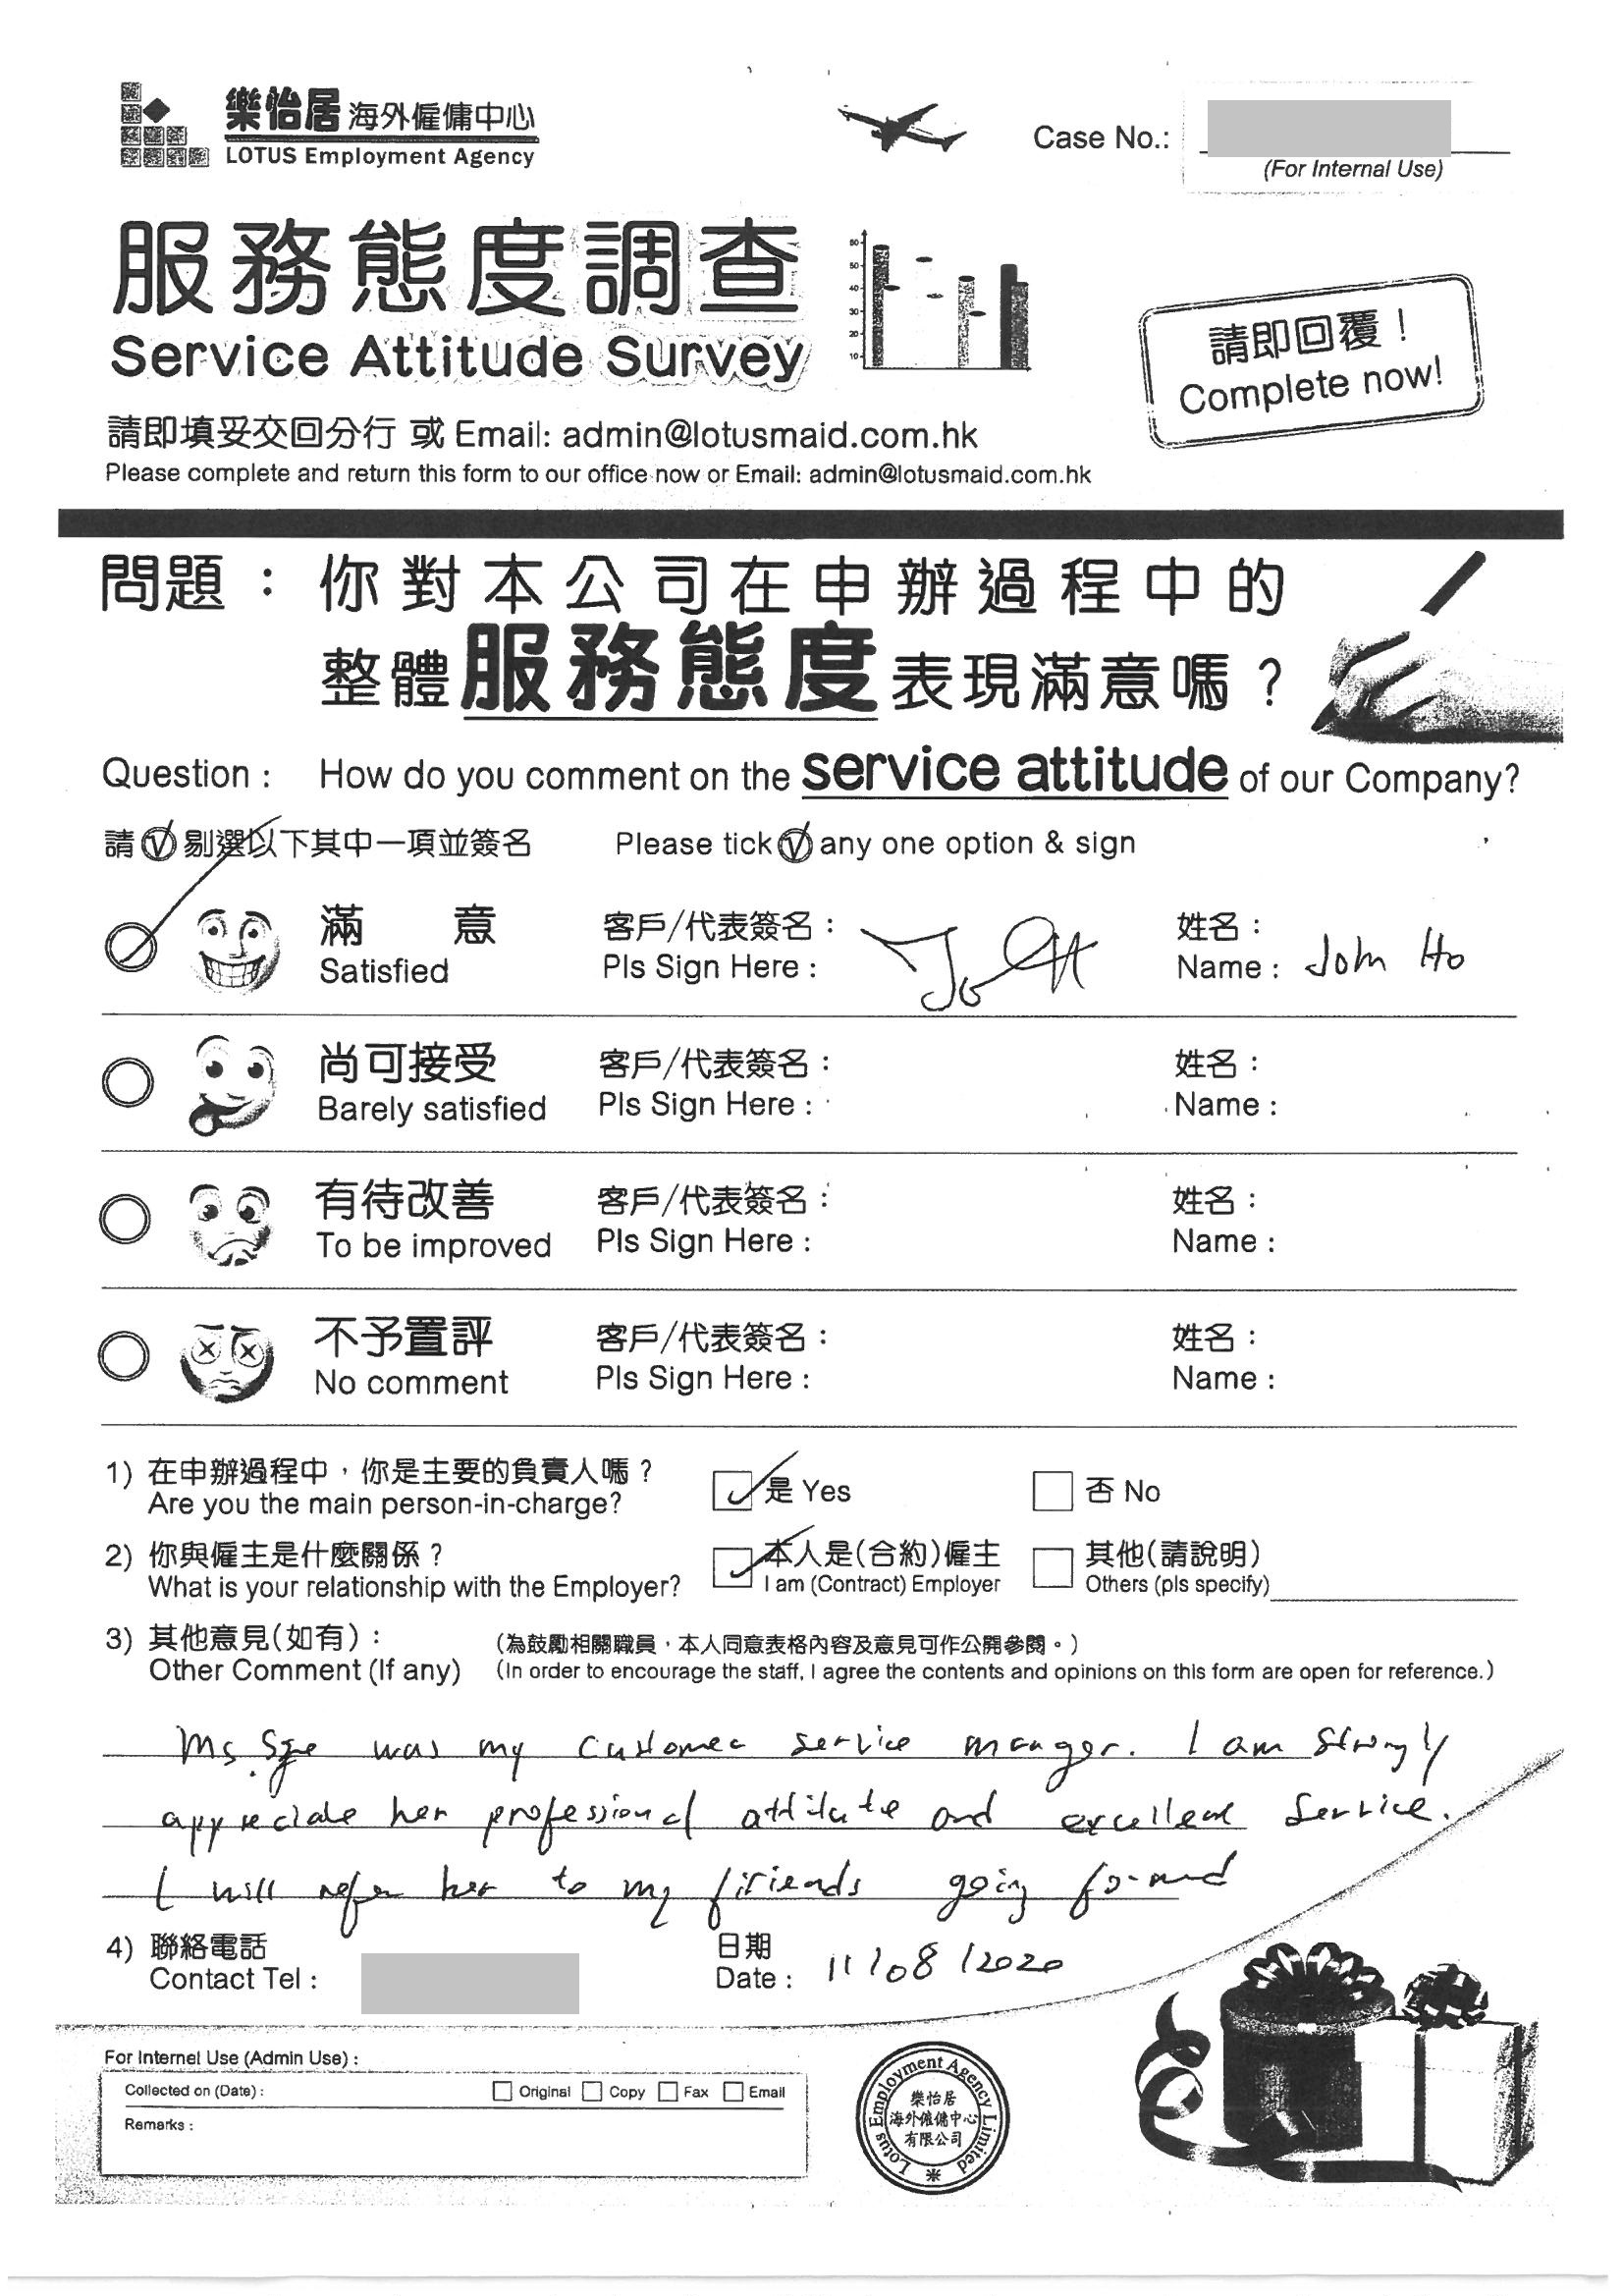 樂怡居 海外僱傭中心
LOTUS Employment Agency
Case No.:
(For Internal Use)
服務態度調查
Service Attitude Survey
60
50
40
30
20
10
請即回覆！
Complete now!
請即填妥交回分行 或 Email: admin@lotusmaid.com.hk
Please complete and return this form to our office now or Email: admin@lotusmaid.com.hk
問題： 你對本公司在申辦過程中的
整體服務態度表現滿意嗎？
Question : How do you comment on the service attitude of our Company?
請 剔選以下其中一項並簽名 Please tick any one option & sign
滿 意 客戶/代表簽名： 姓名：
Satisfied Pls Sign Here : Name : John Ho
尚可接受 客戶/代表簽名： 姓名：
Barely satisfied Pls Sign Here : Name :
有待改善 客戶/代表簽名： 姓名：
To be improved Pls Sign Here : Name :
不予置評 客戶/代表簽名： 姓名：
No comment Pls Sign Here : Name :
1) 在申辦過程中，你是主要的負責人嗎？ 是 Yes 否 No
Are you the main person-in-charge?
2) 你與僱主是什麼關係？ 本人是(合約)僱主 其他(請說明)
What is your relationship with the Employer? I am (Contract) Employer Others (pls specify)
3) 其他意見(如有)： (為鼓勵相關職員，本人同意表格內容及意見可作公開參閱。)
Other Comment (If any) (In order to encourage the staff, I agree the contents and opinions on this form are open for reference.)
Ms. was my customer service manager. I am strongly
appreciate her professional attitute and excellent service.
I will refer her to my friends going forward
4) 聯絡電話 日期
Contact Tel : Date : 11/08/2020
For Internel Use (Admin Use) :
Collected on (Date) : Original Copy Fax Email
Remarks :
Lotus Employment Agency Limited
樂怡居
海外僱傭中心
有限公司